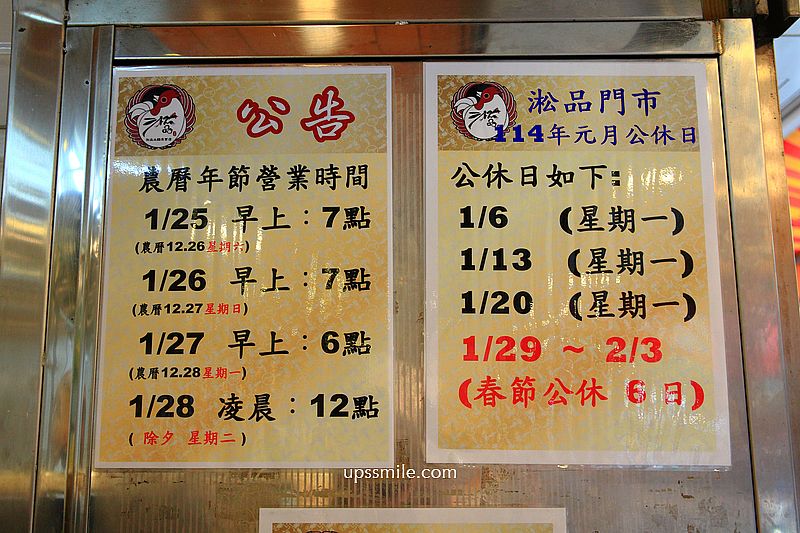 淞品
公告
農曆年節營業時間
1/25 早上：7點
(農曆12.26 星期六)
1/26 早上：7點
(農曆12.27 星期日)
1/27 早上：6點
(農曆12.28 星期一)
1/28 凌晨：12點
( 除夕 星期二 )
淞品
淞品門市
114年元月公休日
公休日如下：
1/6 (星期一)
1/13 (星期一)
1/20 (星期一)
1/29 ~ 2/3
(春節公休 6 日)
upssmile.com